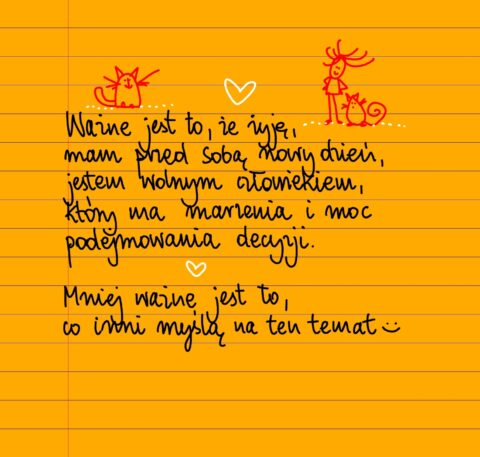 Ważne jest to, że żyję,
mam przed sobą nowy dzień,
jestem wolnym człowiekiem,
który ma marzenia i moc
podejmowania decyzji.
Mniej ważne jest to,
co inni myślą na ten temat